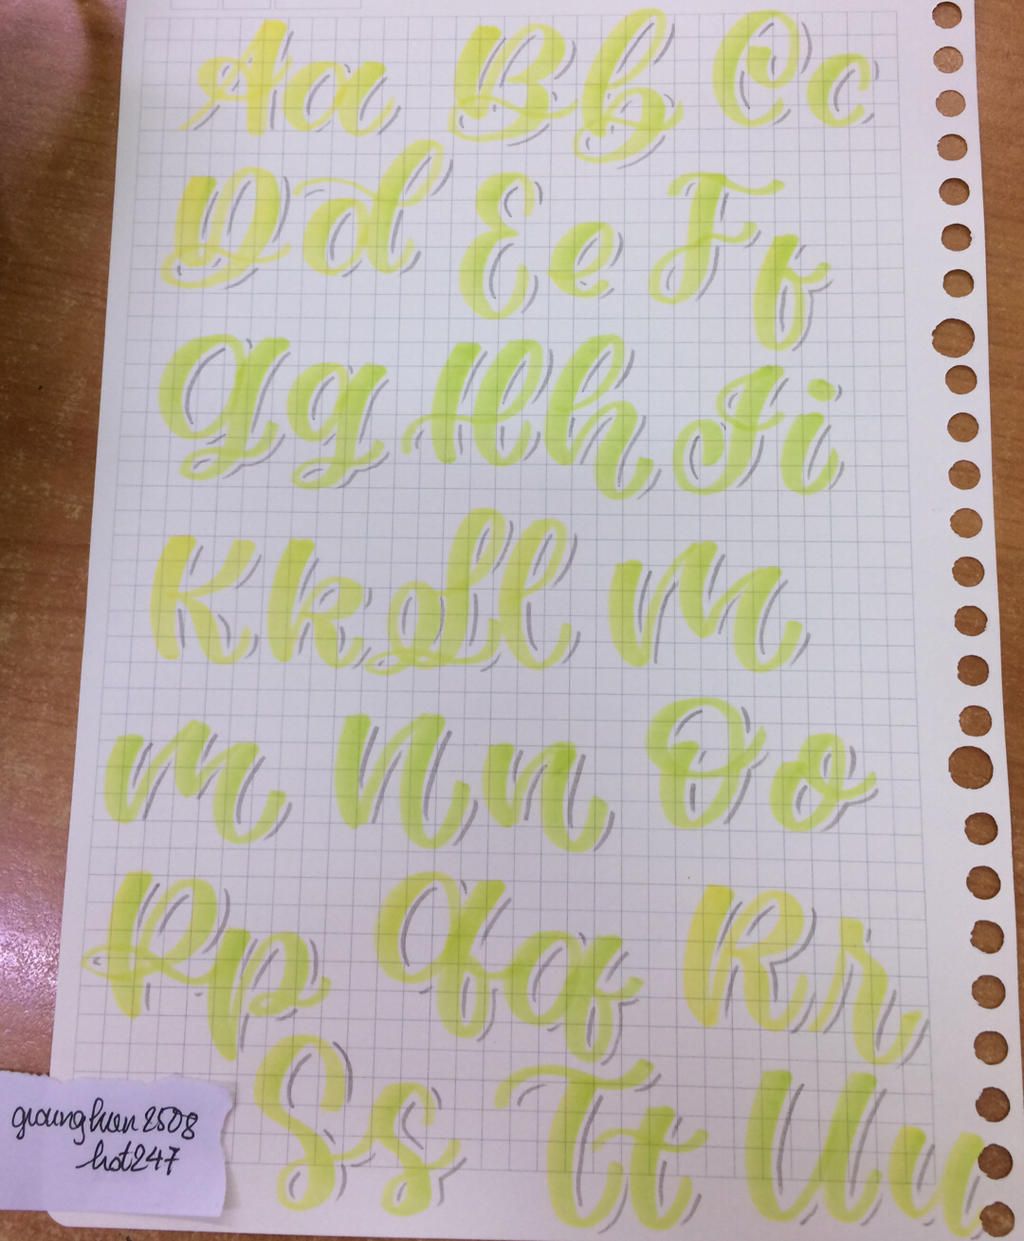 Aa Bb Cc
Dd Ee Ff
Gg Hh Ii
Kk Ll M
m Nn Oo
Pp Qq Rr
Ss Tt Uu
2508
hot247